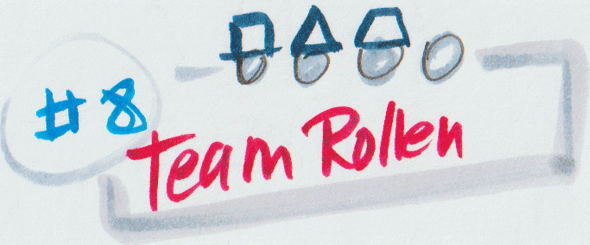 #8
Team Rollen